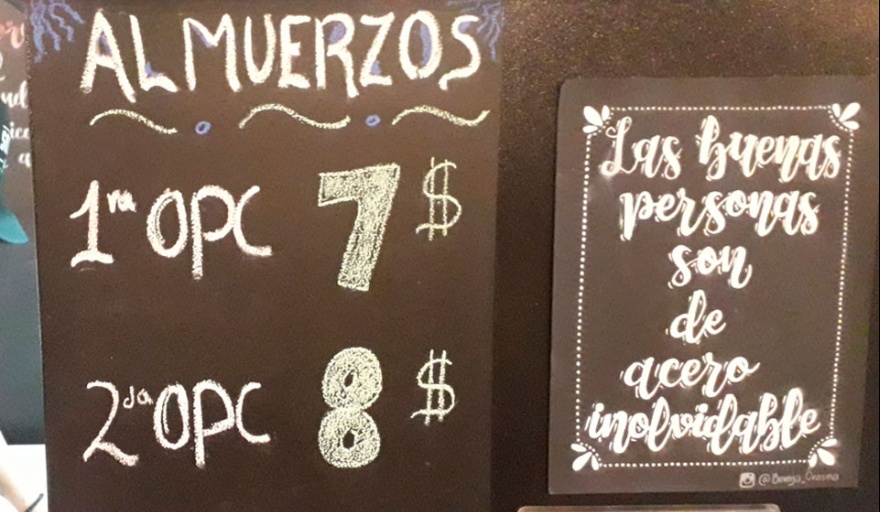 ALMUERZOS
1ra OPC 7 $
2da OPC 8 $
Las buenas
personas
son
de
acero
inolvidable